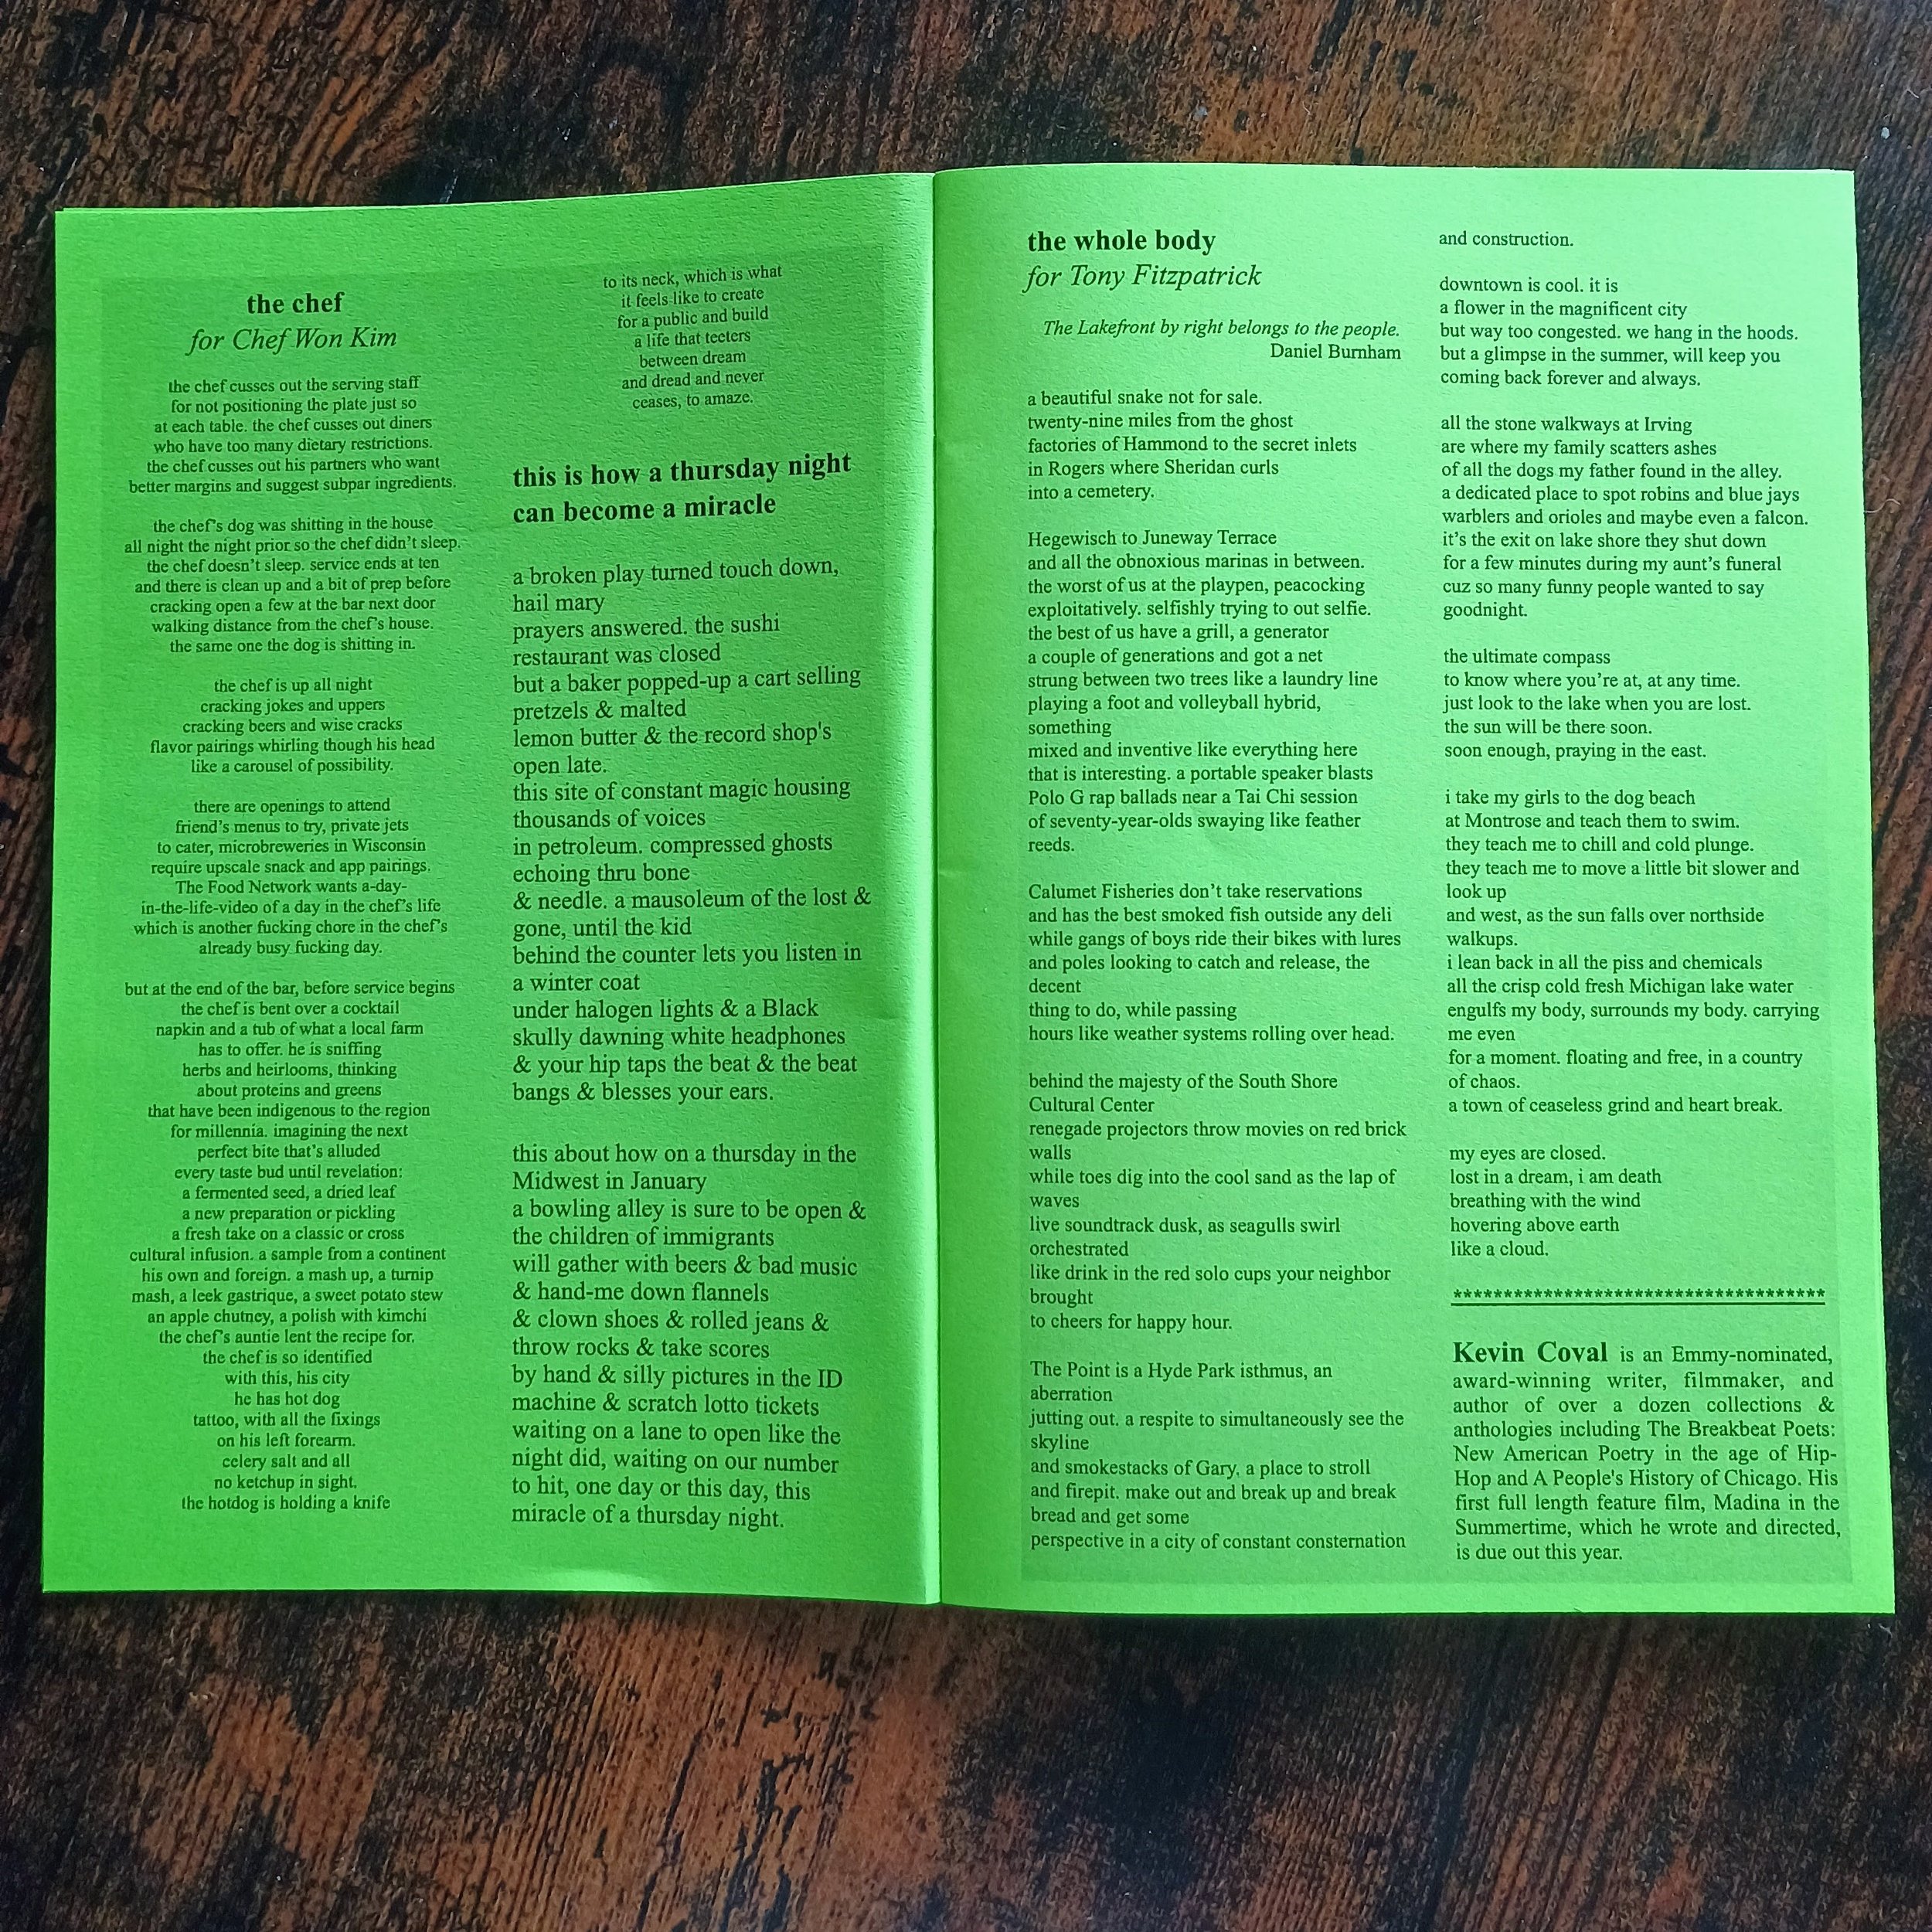 the chef
for Chef Won Kim
the chef cusses out the serving staff
for not positioning the plate just so
at each table. the chef cusses out diners
who have too many dietary restrictions.
the chef cusses out his partners who want
better margins and suggest subpar ingredients.
the chef's dog was shitting in the house
all night the night prior so the chef didn't sleep.
the chef doesn't sleep. service ends at ten
and there is clean up and a bit of prep before
cracking open a few at the bar next door
walking distance from the chef's house.
the same one the dog is shitting in.
the chef is up all night
cracking jokes and uppers
cracking beers and wise cracks
flavor pairings whirling though his head
like a carousel of possibility.
there are openings to attend
friend's menus to try, private jets
to cater, microbreweries in Wisconsin
require upscale snack and app pairings.
The Food Network wants a-day-
in-the-life-video of a day in the chef's life
which is another fucking chore in the chef's
already busy fucking day.
but at the end of the bar, before service begins
the chef is bent over a cocktail
napkin and a tub of what a local farm
has to offer. he is sniffing
herbs and heirlooms, thinking
about proteins and greens
that have been indigenous to the region
for millennia. imagining the next
perfect bite that's alluded
every taste bud until revelation:
a fermented seed, a dried leaf
a new preparation or pickling
a fresh take on a classic or cross
cultural infusion. a sample from a continent
his own and foreign. a mash up, a turnip
mash, a leek gastrique, a sweet potato stew
an apple chutney, a polish with kimchi
the chef's auntie lent the recipe for.
the chef is so identified
with this, his city
he has hot dog
tattoo, with all the fixings
on his left forearm.
celery salt and all
no ketchup in sight.
the hotdog is holding a knife
to its neck, which is what
it feels like to create
for a public and build
a life that teeters
between dream
and dread and never
ceases, to amaze.
this is how a thursday night
can become a miracle
a broken play turned touch down,
hail mary
prayers answered. the sushi
restaurant was closed
but a baker popped-up a cart selling
pretzels & malted
lemon butter & the record shop's
open late.
this site of constant magic housing
thousands of voices
in petroleum. compressed ghosts
echoing thru bone
& needle. a mausoleum of the lost &
gone, until the kid
behind the counter lets you listen in
a winter coat
under halogen lights & a Black
skully dawning white headphones
& your hip taps the beat & the beat
bangs & blesses your ears.
this about how on a thursday in the
Midwest in January
a bowling alley is sure to be open &
the children of immigrants
will gather with beers & bad music
& hand-me down flannels
& clown shoes & rolled jeans &
throw rocks & take scores
by hand & silly pictures in the ID
machine & scratch lotto tickets
waiting on a lane to open like the
night did, waiting on our number
to hit, one day or this day, this
miracle of a thursday night.
the whole body
for Tony Fitzpatrick
The Lakefront by right belongs to the people.
Daniel Burnham
a beautiful snake not for sale.
twenty-nine miles from the ghost
factories of Hammond to the secret inlets
in Rogers where Sheridan curls
into a cemetery.
Hegewisch to Juneway Terrace
and all the obnoxious marinas in between.
the worst of us at the playpen, peacocking
exploitatively. selfishly trying to out selfie.
the best of us have a grill, a generator
a couple of generations and got a net
strung between two trees like a laundry line
playing a foot and volleyball hybrid,
something
mixed and inventive like everything here
that is interesting. a portable speaker blasts
Polo G rap ballads near a Tai Chi session
of seventy-year-olds swaying like feather
reeds.
Calumet Fisheries don't take reservations
and has the best smoked fish outside any deli
while gangs of boys ride their bikes with lures
and poles looking to catch and release, the
decent
thing to do, while passing
hours like weather systems rolling over head.
behind the majesty of the South Shore
Cultural Center
renegade projectors throw movies on red brick
walls
while toes dig into the cool sand as the lap of
waves
live soundtrack dusk, as seagulls swirl
orchestrated
like drink in the red solo cups your neighbor
brought
to cheers for happy hour.
The Point is a Hyde Park isthmus, an
aberration
jutting out. a respite to simultaneously see the
skyline
and smokestacks of Gary. a place to stroll
and firepit. make out and break up and break
bread and get some
perspective in a city of constant consternation
and construction.
downtown is cool. it is
a flower in the magnificent city
but way too congested. we hang in the hoods.
but a glimpse in the summer, will keep you
coming back forever and always.
all the stone walkways at Irving
are where my family scatters ashes
of all the dogs my father found in the alley.
a dedicated place to spot robins and blue jays
warblers and orioles and maybe even a falcon.
it's the exit on lake shore they shut down
for a few minutes during my aunt's funeral
cuz so many funny people wanted to say
goodnight.
the ultimate compass
to know where you're at, at any time.
just look to the lake when you are lost.
the sun will be there soon.
soon enough, praying in the east.
i take my girls to the dog beach
at Montrose and teach them to swim.
they teach me to chill and cold plunge.
they teach me to move a little bit slower and
look up
and west, as the sun falls over northside
walkups.
i lean back in all the piss and chemicals
all the crisp cold fresh Michigan lake water
engulfs my body, surrounds my body. carrying
me even
for a moment. floating and free, in a country
of chaos.
a town of ceaseless grind and heart break.
my eyes are closed.
lost in a dream, i am death
breathing with the wind
hovering above earth
like a cloud.
*************************************
Kevin Coval is an Emmy-nominated,
award-winning writer, filmmaker, and
author of over a dozen collections &
anthologies including The Breakbeat Poets:
New American Poetry in the age of Hip-
Hop and A People's History of Chicago. His
first full length feature film, Madina in the
Summertime, which he wrote and directed,
is due out this year.